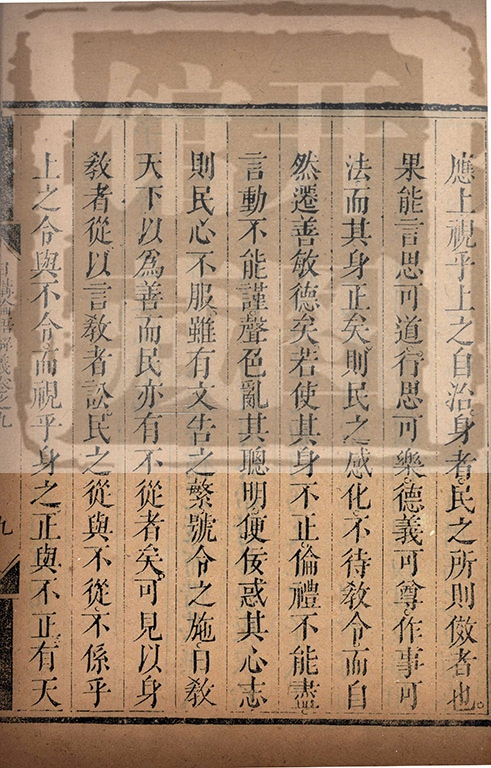 應上視乎上之自治身者民之所則傚者也
果能言思可道行思可樂德義可尊作事可
法而其身正矣則民之感化不待敎令而自
然遷善敏德矣若使其身不正倫禮不能盡
言動不能謹聲色亂其聰明便佞惑其心志
則民心不服雖有文告之繁號令之施日敎
天下以爲善而民亦有不從者矣可見以身
敎者從以言敎者訟民之從與不從不係乎
上之令與不令而視乎身之正與不正有天
日講四書解義卷之九
九